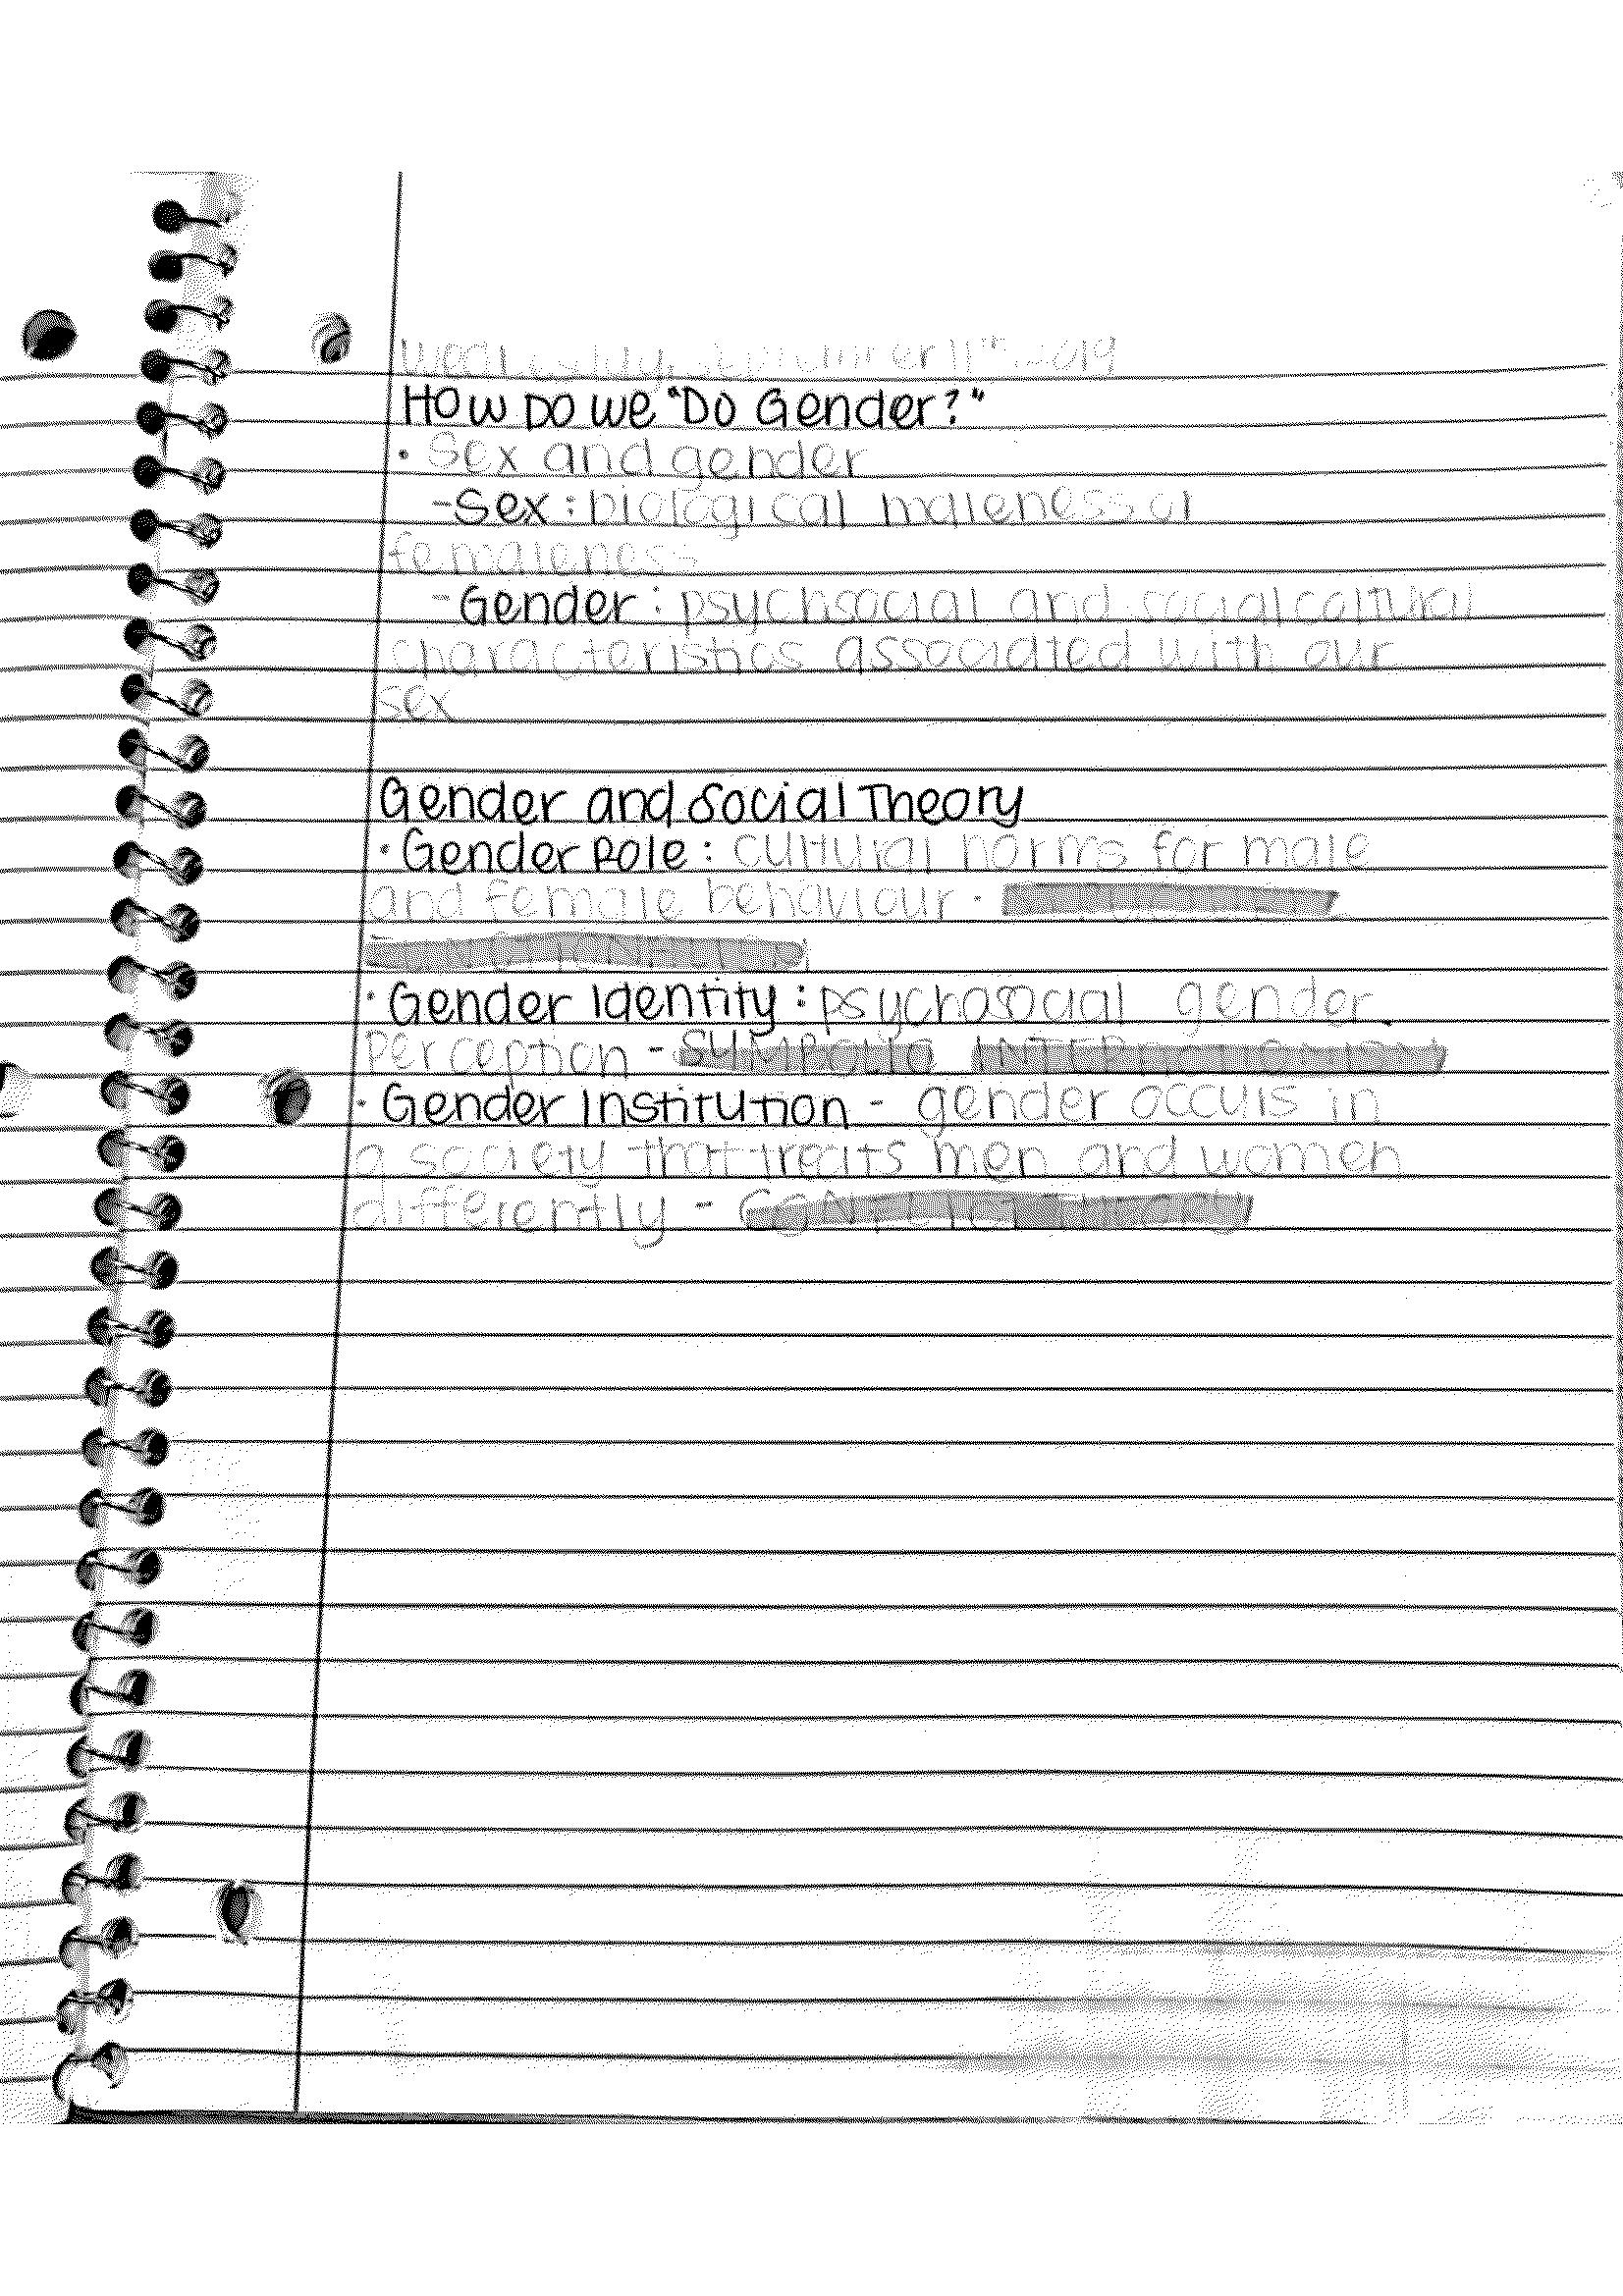 Wednesday, September 11th 2019
How Do we "Do Gender?"
• Sex and gender
-Sex: biological maleness or
femaleness
-Gender: psychsocial and socialcoltural
characteristics associated with our
sex
Gender and Social Theory
• Gender Role: cultural norms for male
and female behaviour -
• Gender Identity: psychosocial gender
perception - SYMBOLIC INTERACTIONISM
• Gender Institution - gender occurs in
a society that treats men and women
differently - CONFLICT THEORY